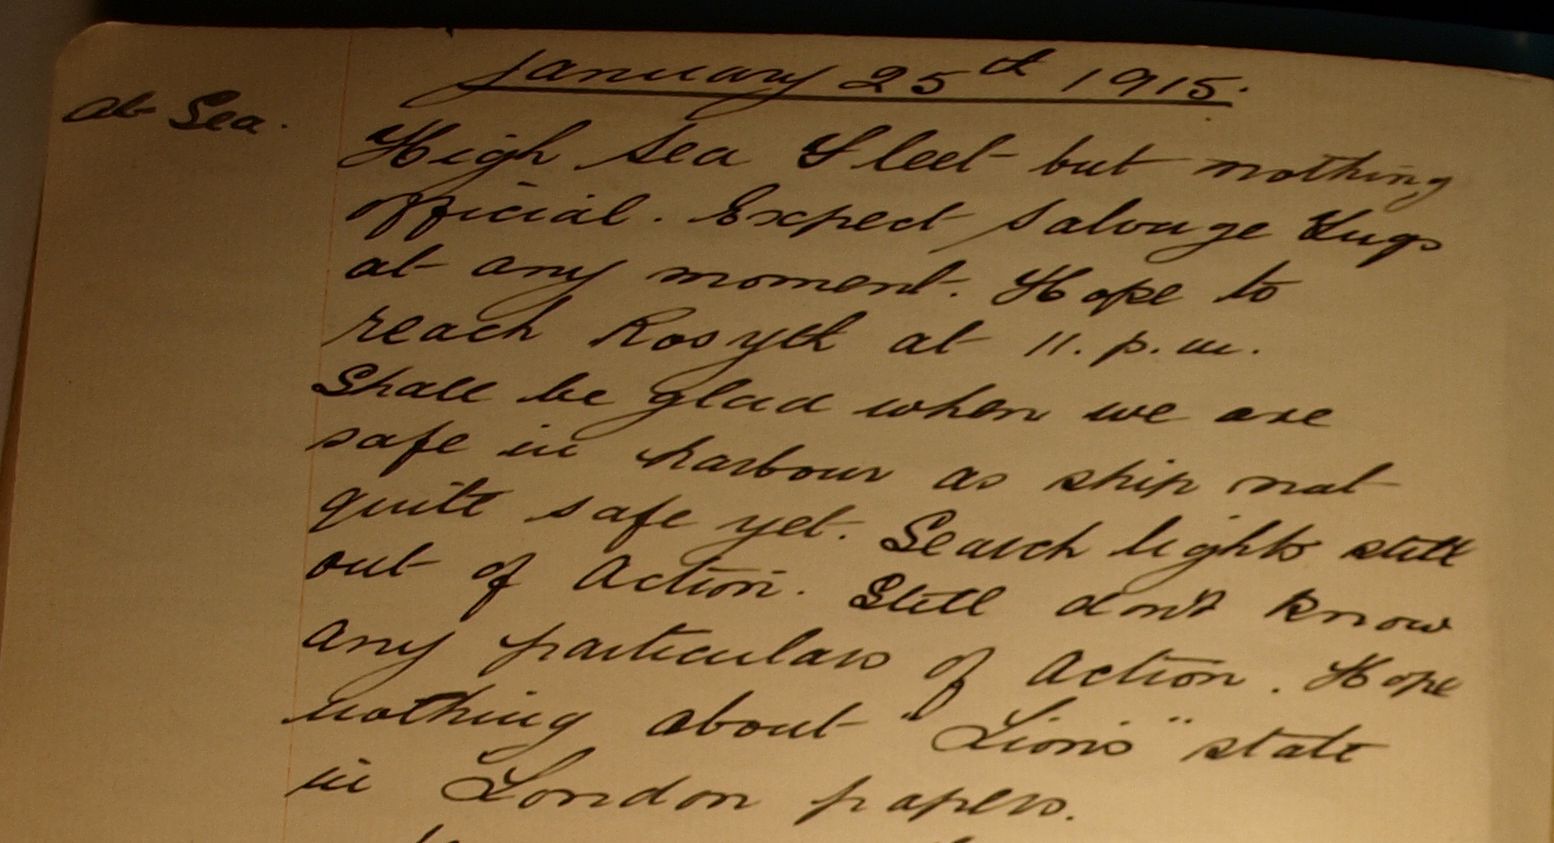 January 25th 1915.
At Sea.
High Sea Fleet but nothing
official. Expect Salvage Tugs
at any moment. Hope to
reach Rosyth at 11. p.m.
Shall be glad when we are
safe in harbour as ship not
quite safe yet. Search lights still
out of Action. Still don't know
any particulars of Action. Hope
nothing about "Lion's" state
in London papers.